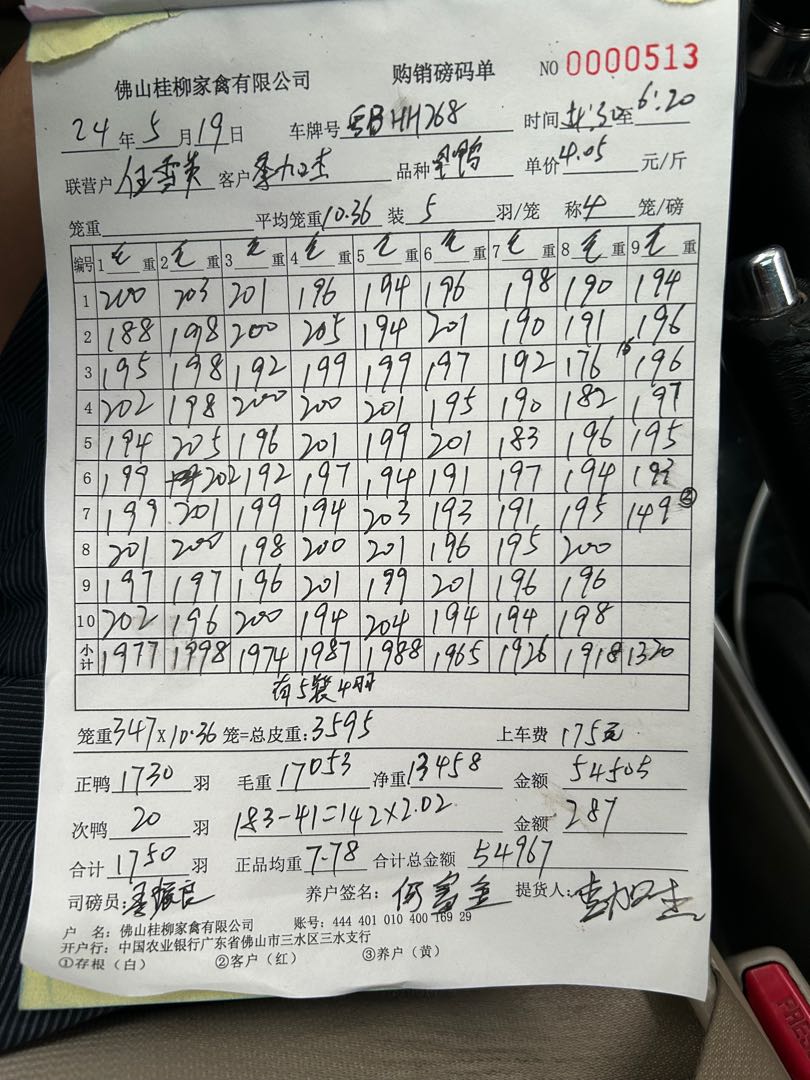 佛山桂柳家禽有限公司 购销磅码单 NO 0000513
24年5月19日 车牌号 粤BHH268 时间 至6:20
联营户 任雪英 客户 品种 单价4.05元/斤
笼重 平均笼重10.36 装5羽/笼 称4笼/磅
编号 1毛重 2毛重 3毛重 4毛重 5毛重 6毛重 7毛重 8毛重 9毛重
1 200 203 201 196 194 196 198 190 194
2 188 198 200 205 194 201 190 191 196
3 195 198 192 199 199 197 192 176 196
4 202 198 200 200 201 195 190 182 197
5 194 205 196 201 199 201 183 196 195
6 199 202 192 197 194 191 197 194 193
7 199 201 199 194 203 193 191 195 149 ③
8 201 200 198 200 201 196 195 200
9 197 197 196 201 199 201 196 196
10 202 196 200 194 204 194 194 198
小计 1977 1998 1974 1987 1988 1965 1926 1918 1320
有5装4羽
笼重347×10.36笼=总皮重:3595 上车费 175元
正鸭1730羽 毛重17053 净重13458 金额 54505
次鸭 20 羽 183-41=142×2.02 金额 287
合计1750羽 正品均重7.78 合计总金额 54967
司磅员: 养户签名:何富金 提货人:
户 名:佛山桂柳家禽有限公司 账号:444 401 010 400 169 29
开户行:中国农业银行广东省佛山市三水区三水支行
①存根(白) ②客户(红) ③养户(黄)